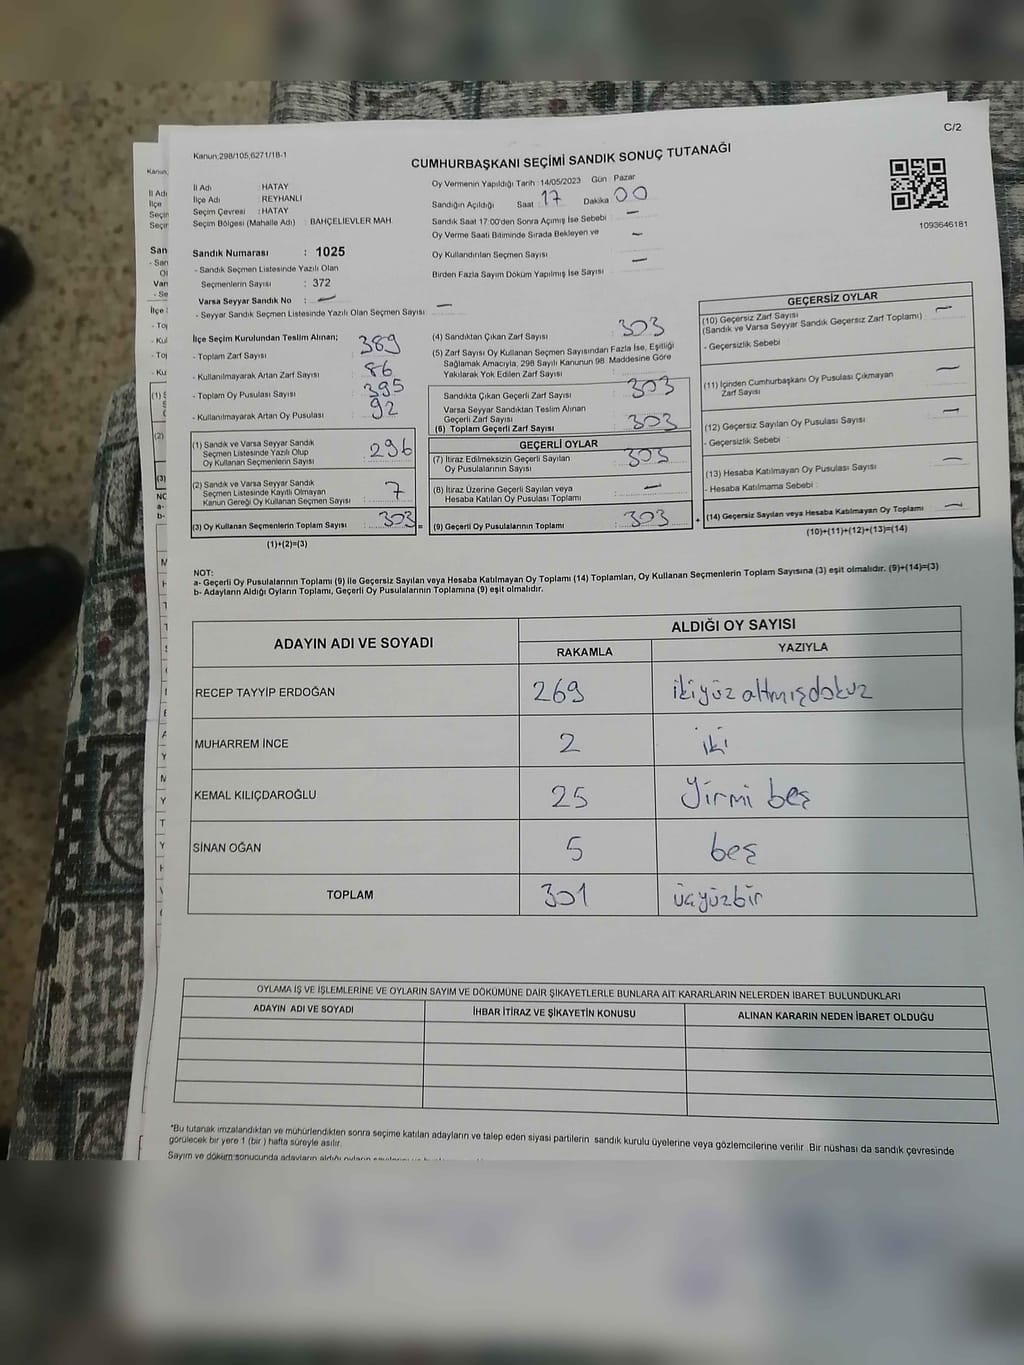 C/2
Kanun:298/105,6271/18-1
CUMHURBAŞKANI SEÇİMİ SANDIK SONUÇ TUTANAĞI
1093646181
İl Adı : HATAY
İlçe Adı : REYHANLI
Seçim Çevresi : HATAY
Seçim Bölgesi (Mahalle Adı) : BAHÇELİEVLER MAH.
Sandık Numarası : 1025
- Sandık Seçmen Listesinde Yazılı Olan
Seçmenlerin Sayısı : 372
Varsa Seyyar Sandık No : —
- Seyyar Sandık Seçmen Listesinde Yazılı Olan Seçmen Sayısı : —
Oy Vermenin Yapıldığı Tarih :14/05/2023 Gün : Pazar
Sandığın Açıldığı Saat : 17 Dakika : 00
Sandık Saat 17:00'den Sonra Açımış İse Sebebi : —
Oy Verme Saati Bitiminde Sırada Bekleyen ve : —
Oy Kullandırılan Seçmen Sayısı
Birden Fazla Sayım Döküm Yapılmış İse Sayısı : —
İlçe Seçim Kurulundan Teslim Alınan;
- Toplam Zarf Sayısı : 389
- Kullanılmayarak Artan Zarf Sayısı : 86
- Toplam Oy Pusulası Sayısı : 395
- Kullanılmayarak Artan Oy Pusulası : 92
(1) Sandık ve Varsa Seyyar Sandık
Seçmen Listesinde Yazılı Olup
Oy Kullanan Seçmenlerin Sayısı : 296
(2) Sandık ve Varsa Seyyar Sandık
Seçmen Listesinde Kayıtlı Olmayan
Kanun Gereği Oy Kullanan Seçmen Sayısı : 7
(3) Oy Kullanan Seçmenlerin Toplam Sayısı : 303 =
(1)+(2)=(3)
(4) Sandıktan Çıkan Zarf Sayısı : 303
(5) Zarf Sayısı Oy Kullanan Seçmen Sayısından Fazla İse, Eşitliği
Sağlamak Amacıyla, 298 Sayılı Kanunun 98. Maddesine Göre
Yakılarak Yok Edilen Zarf Sayısı :
Sandıkta Çıkan Geçerli Zarf Sayısı : 303
Varsa Seyyar Sandıktan Teslim Alınan
Geçerli Zarf Sayısı :
(6) Toplam Geçerli Zarf Sayısı : 303
GEÇERLİ OYLAR
(7) İtiraz Edilmeksizin Geçerli Sayılan
Oy Pusulalarının Sayısı : 303
(8) İtiraz Üzerine Geçerli Sayılan veya
Hesaba Katılan Oy Pusulası Toplamı : —
(9) Geçerli Oy Pusulalarının Toplamı : 303 +
GEÇERSİZ OYLAR
(10) Geçersiz Zarf Sayısı : —
(Sandık ve Varsa Seyyar Sandık Geçersiz Zarf Toplamı)
- Geçersizlik Sebebi :
(11) İçinden Cumhurbaşkanı Oy Pusulası Çıkmayan
Zarf Sayısı : —
(12) Geçersiz Sayılan Oy Pusulası Sayısı : —
- Geçersizlik Sebebi :
(13) Hesaba Katılmayan Oy Pusulası Sayısı : —
- Hesaba Katılmama Sebebi :
(14) Geçersiz Sayılan veya Hesaba Katılmayan Oy Toplamı : —
(10)+(11)+(12)+(13)=(14)
NOT:
a- Geçerli Oy Pusulalarının Toplamı (9) ile Geçersiz Sayılan veya Hesaba Katılmayan Oy Toplamı (14) Toplamları, Oy Kullanan Seçmenlerin Toplam Sayısına (3) eşit olmalıdır. (9)+(14)=(3)
b- Adayların Aldığı Oyların Toplamı, Geçerli Oy Pusulalarının Toplamına (9) eşit olmalıdır.
ADAYIN ADI VE SOYADI ALDIĞI OY SAYISI
RAKAMLA YAZIYLA
RECEP TAYYİP ERDOĞAN 269 ikiyüz altmışdokuz
MUHARREM İNCE 2 iki
KEMAL KILIÇDAROĞLU 25 Yirmi beş
SİNAN OĞAN 5 beş
TOPLAM 301 üçyüzbir
OYLAMA İŞ VE İŞLEMLERİNE VE OYLARIN SAYIM VE DÖKÜMÜNE DAİR ŞİKAYETLERLE BUNLARA AİT KARARLARIN NELERDEN İBARET BULUNDUKLARI
ADAYIN ADI VE SOYADI İHBAR İTİRAZ VE ŞİKAYETİN KONUSU ALINAN KARARIN NEDEN İBARET OLDUĞU
*Bu tutanak imzalandıktan ve mühürlendikten sonra seçime katılan adayların ve talep eden siyasi partilerin sandık kurulu üyelerine veya gözlemcilerine verilir. Bir nüshası da sandık çevresinde
görülecek bir yere 1 (bir) hafta süreyle asılır.
Sayım ve döküm sonucunda adayların aldığı oyların